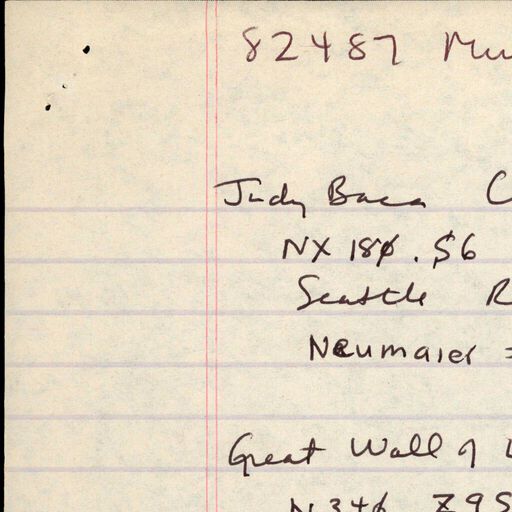 82487 Mu
Judy Baca C
NX 180. S6
Seattle R
Neumaier =
Great Wall of L
N346 Z9S